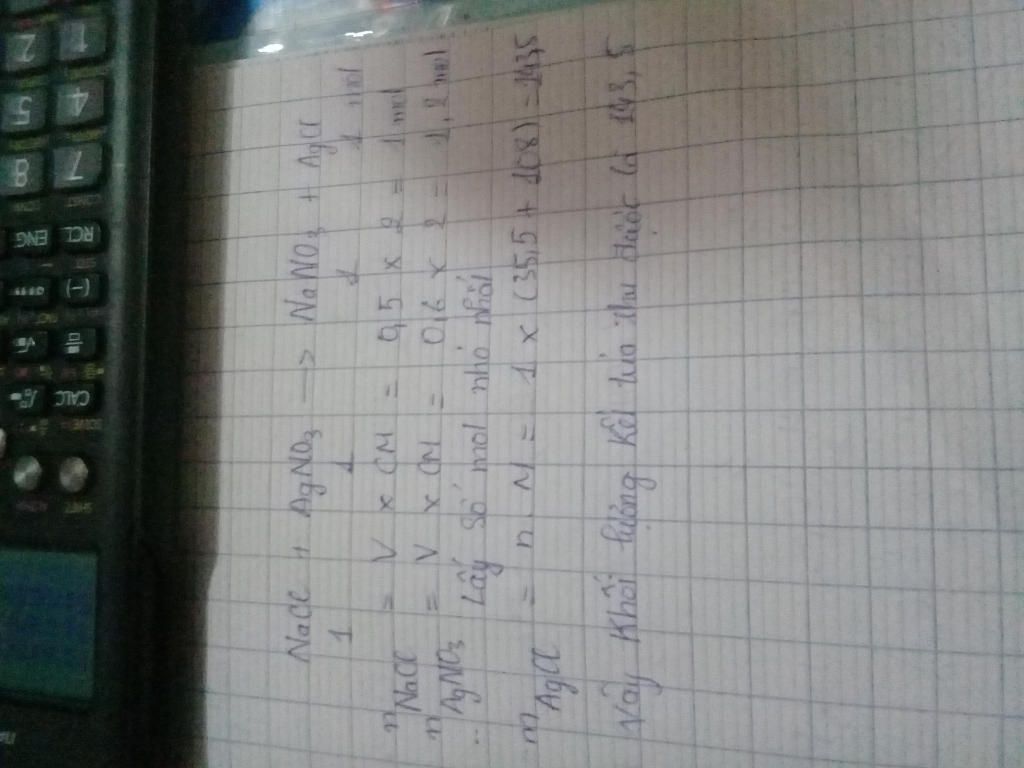 NaCl + AgNO3 —> NaNO3 + AgCl
1 1 1 1 mol
nNaCl = V x CM = 0,5 x 2 = 1 mol
nAgNO3 = V x CM = 0,6 x 2 = 1,2 mol
.. Lấy số mol nhỏ nhất
mAgCl = n . M = 1 x (35,5 + 108) = 143,5
Vậy khối lượng kết tủa thu được là 143,5
1 2
4 5
7 8
RCL ENG
(-)
CALC
SHIFT